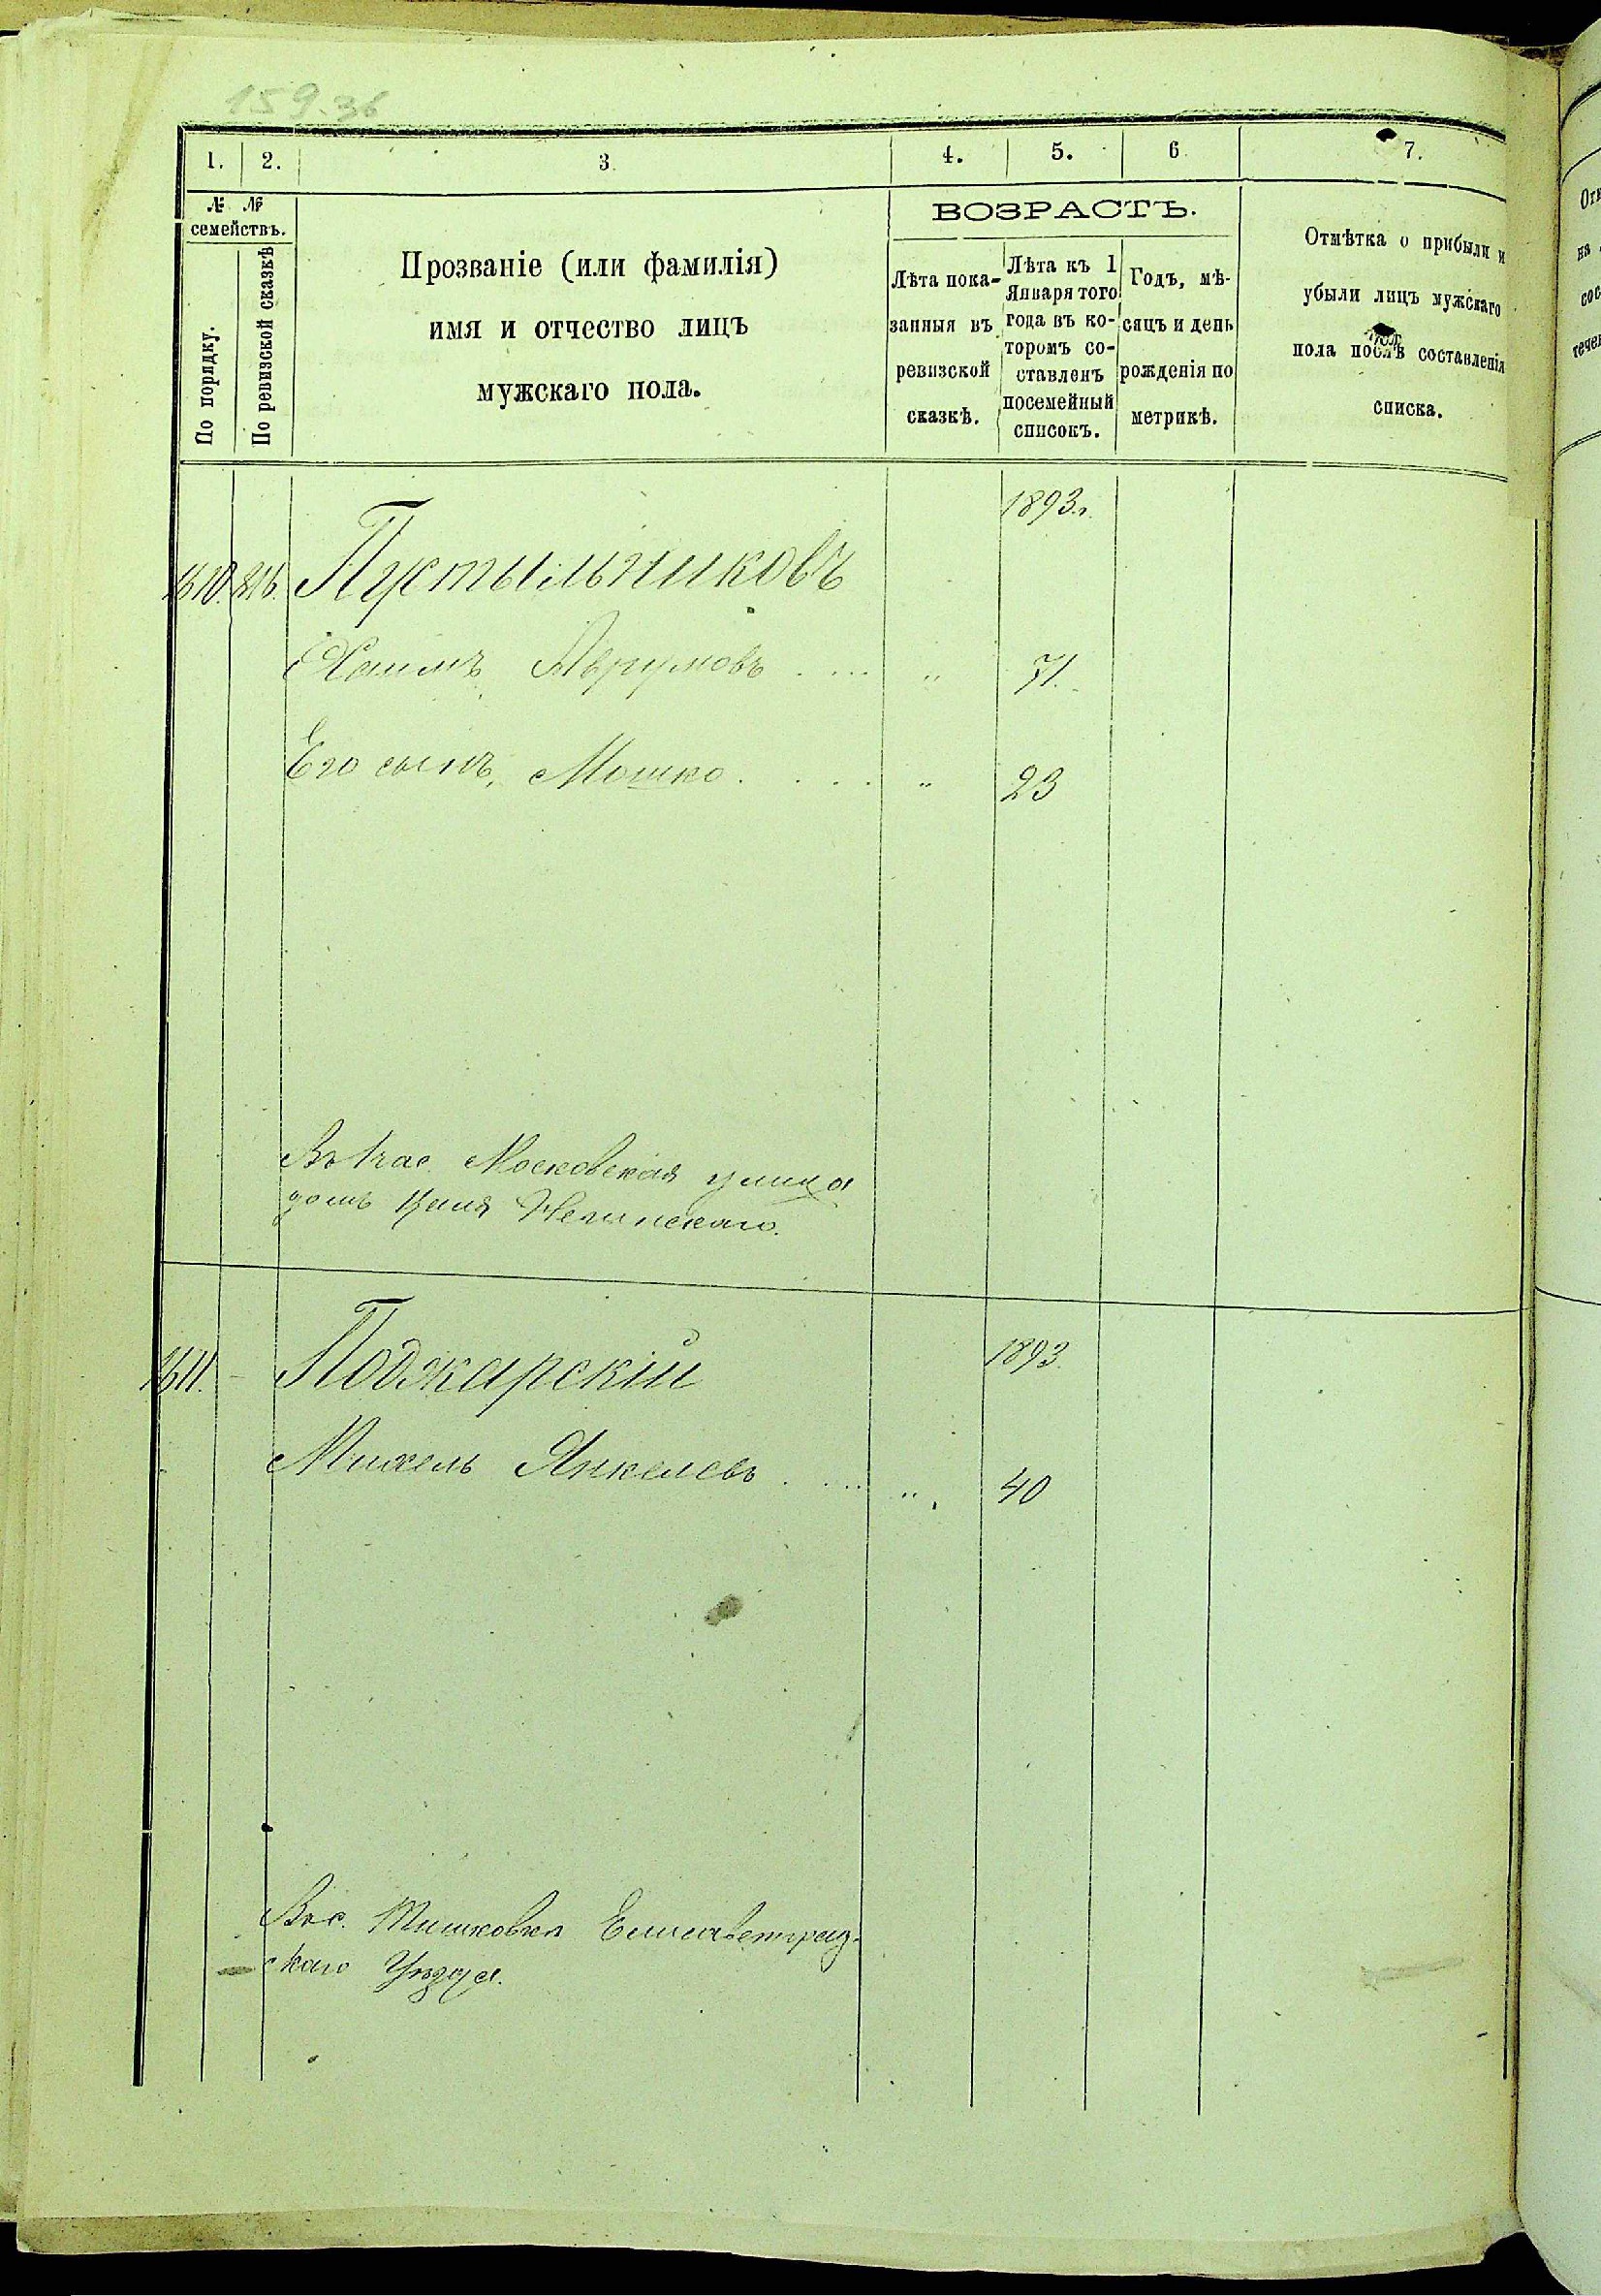 159.36
1. 2. 3. 4. 5. 6. 7.
№ №
семействъ.
По порядку.
По ревизской сказкѣ
Прозваніе (или фамилія)
имя и отчество лицъ
мужскаго пола.
ВОЗРАСТЪ.
Лѣта пока-
занныя въ
ревизской
сказкѣ.
Лѣта къ 1
Января того
года въ ко-
торомъ со-
ставленъ
посемейный
списокъ.
Годъ, мѣ-
сяцъ и день
рожденія по
метрикѣ.
Отмѣтка о прибыли и
убыли лицъ мужскаго
пола послѣ составленія
списка.
1893 г.
1610. Пустыльниковъ
Хаимъ Аврумовъ . . . . " 71.
Его сынъ, Мошко . . . . " 23
Въ 1 час. Московская улица
домъ
1893.
1611. - Поджарскій
Михель Янкелевъ . . . . " 40
Въ с. Тишковка Елисаветград-
скаго Уѣзда.